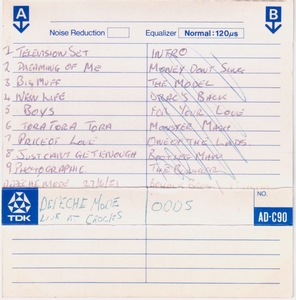 A
B
Noise Reduction
Equalizer Normal: 120μs
1 TELEVISION SET
INTRO
2 DREAMING OF ME
MONEY DON'T SING
3 BIG MUFF
THE MODEL
4 NEW LIFE
DRAC'S BACK
5 BOYS
FOR YOUR LOVE
6 TORA TORA TORA
MONSTER MASH
7 PRICE OF LOVE
ONE OF THE LADS
8 JUST CAN'T GET ENOUGH
9 PHOTOGRAPHIC
THE
DEPECHE MODE
DEPECHE MODE
LIVE AT CROCS
0005
NO.
TDK
AD-C90